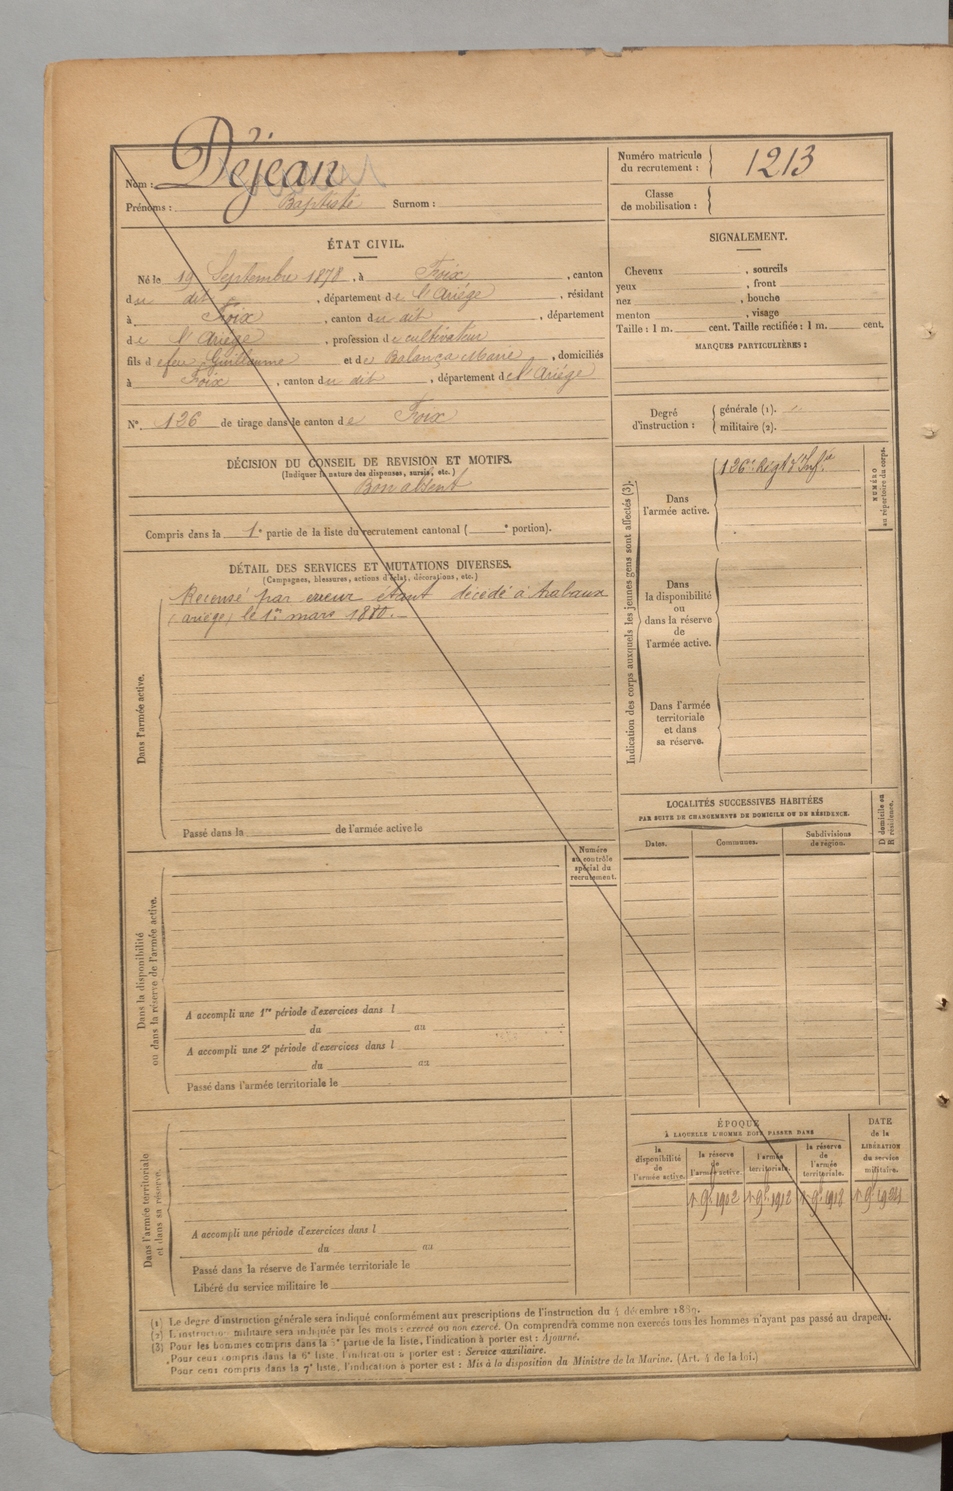 Nom : Déjean
Prénoms : Baptiste Surnom :
Numéro matricule du recrutement : 1213
Classe de mobilisation :
ÉTAT CIVIL.
Né le 19 Septembre 1878, à Foix, canton
du dit, département de l'Ariège, résidant
à Foix, canton du dit, département
de l'Ariège, profession de cultivateur
fils de feu Guillaume et de Balança Marie, domiciliés
à Foix, canton du dit, département de l'Ariège
N° 126 de tirage dans le canton de Foix
SIGNALEMENT.
Cheveux , sourcils
yeux , front
nez , bouche
menton , visage
Taille : 1 m. cent. Taille rectifiée : 1 m. cent.
MARQUES PARTICULIÈRES :
Degré d'instruction : générale (1).
militaire (2).
DÉCISION DU CONSEIL DE REVISION ET MOTIFS.
(Indiquer la nature des dispenses, sursis, etc.)
Bon absent
Compris dans la 1e partie de la liste du recrutement cantonal ( e portion).
DÉTAIL DES SERVICES ET MUTATIONS DIVERSES.
(Campagnes, blessures, actions d'éclat, décorations, etc.)
Recensé par erreur étant décédé à
(ariège) le 1er mars 1880.
Dans l'armée active.
Passé dans la de l'armée active le
Indication des corps auxquels les jeunes gens sont affectés (3).
Dans l'armée active.
126e Régt d'Infie
NUMÉRO au répertoire du corps.
Dans la disponibilité ou dans la réserve de l'armée active.
Dans l'armée territoriale et dans sa réserve.
LOCALITÉS SUCCESSIVES HABITÉES
PAR SUITE DE CHANGEMENTS DE DOMICILE OU DE RÉSIDENCE.
Dates.
Communes.
Subdivisions de région.
D domicile ou R résidence.
Numéro au contrôle spécial du recrutement.
Dans la disponibilité ou dans la réserve de l'armée active.
A accompli une 1re période d'exercices dans l
du au
A accompli une 2e période d'exercices dans l
du au
Passé dans l'armée territoriale le
Dans l'armée territoriale et dans sa réserve.
A accompli une période d'exercices dans l
du au
Passé dans la réserve de l'armée territoriale le
Libéré du service militaire le
ÉPOQUE
À LAQUELLE L'HOMME DOIT PASSER DANS
la disponibilité de l'armée active.
la réserve de l'armée active.
l'armée territoriale.
la réserve de l'armée territoriale.
DATE de la LIBÉRATION du service militaire.
(1) Le degré d'instruction générale sera indiqué conformément aux prescriptions de l'instruction du 4 décembre 1889.
(2) L'instruction militaire sera indiquée par les mots : exercé ou non exercé. On comprendra comme non exercés tous les hommes n'ayant pas passé au drapeau.
(3) Pour les hommes compris dans la 5e partie de la liste, l'indication à porter est : Ajourné.
Pour ceux compris dans la 6e liste, l'indication à porter est : Service auxiliaire.
Pour ceux compris dans la 7e liste, l'indication à porter est : Mis à la disposition du Ministre de la Marine. (Art. 4 de la loi.)